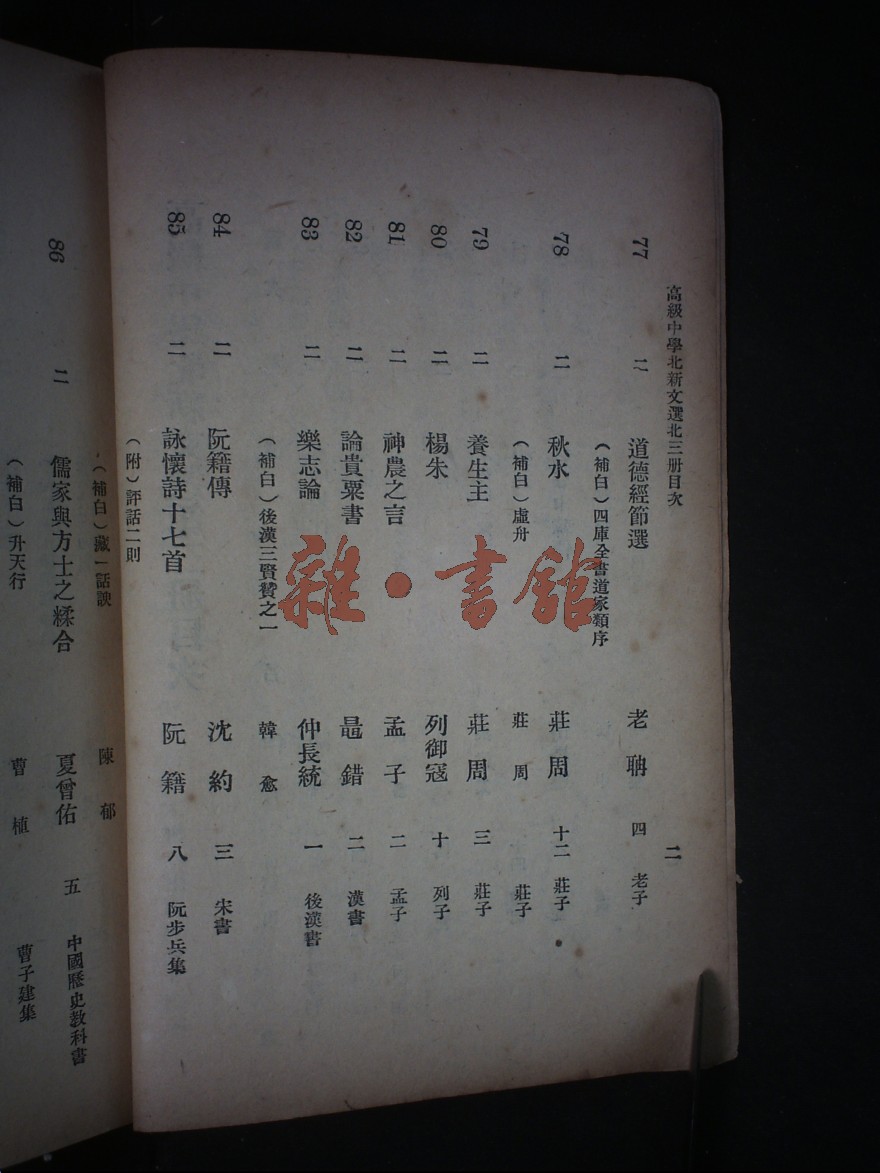 高級中學北新文選北三册目次 二
77 二 道德經節選 老聃 四 老子
(補白)四庫全書道家類序
78 二 秋水 莊周 十二 莊子
(補白)虛舟 莊周 莊子
79 二 養生主 莊周 三 莊子
80 二 楊朱 列御寇 十 列子
81 二 神農之言 孟子 二 孟子
82 二 論貴粟書 鼂錯 二 漢書
83 二 樂志論 仲長統 一 後漢書
(補白)後漢三賢贊之一 韓愈
84 二 阮籍傳 沈約 三 宋書
85 二 詠懷詩十七首 阮籍 八 阮步兵集
(附)評話二則
(補白)藏一話腴 陳郁
86 二 儒家與方士之糅合 夏曾佑 五 中國歷史教科書
(補白)升天行 曹植 曹子建集
雜·書館